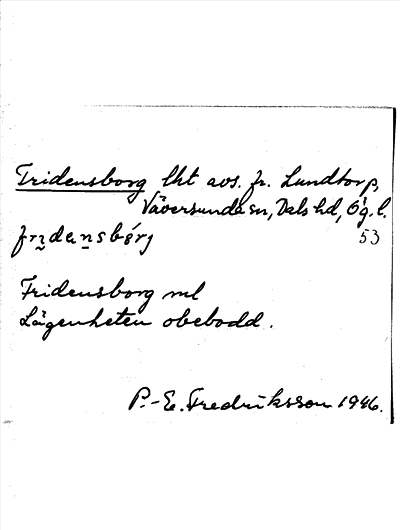 Fridensborg lht avs. fr. Lundtorp,
Väversunda sn, Dals hd, Ög. l.
frıdənsbǿrj 53
Fridensborg ml
Lägenheten obebodd.
P.-E. Fredriksson 1946.